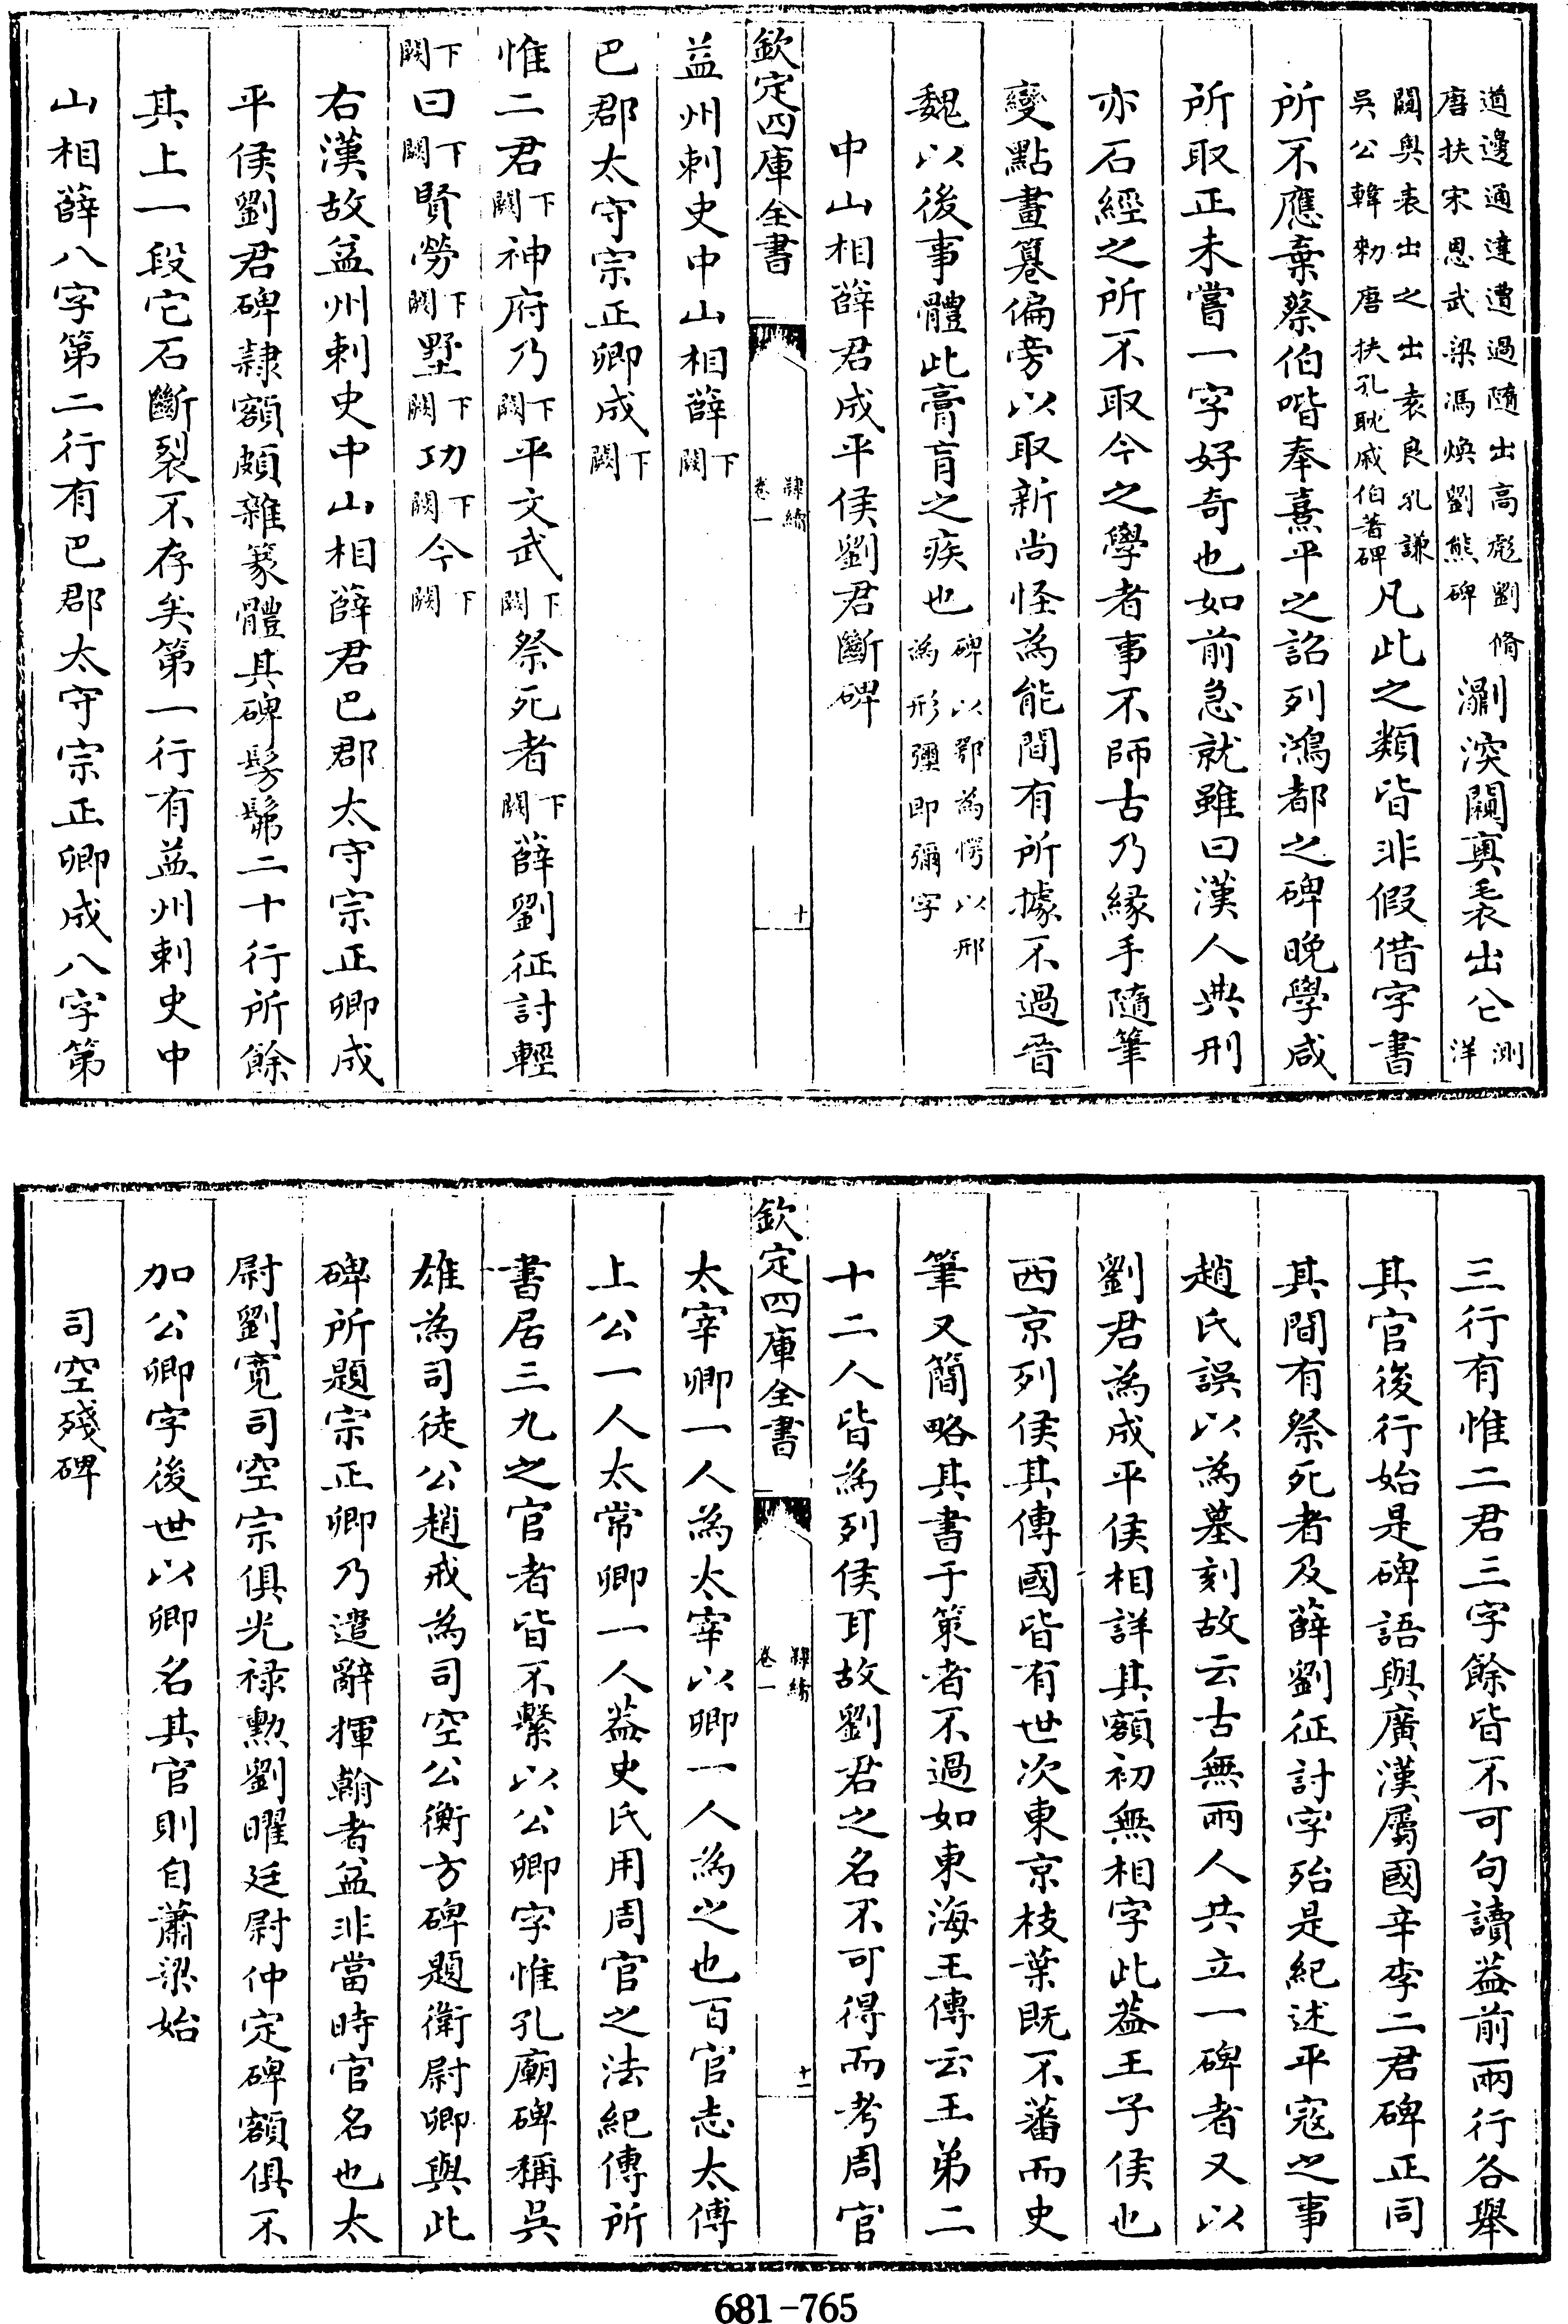 道邊通達遭過隨出高彪劉脩
唐扶宋恩武梁馮煥劉熊碑
瀏湥闌䆠表出公
測
洋
闕與表出之出袁良孔謙
吳公韓勑唐扶孔耽戚伯著碑
凡此之類皆非假借字書
所不應棄蔡伯喈奉熹平之詔列鴻都之碑晚學咸
所取正未嘗一字好奇也如前急就雖曰漢人典刑
亦石經之所不取今之學者事不師古乃縁手隨筆
變點畫篡偏旁以取新尚怪為能間有所據不過晉
魏以後事體此膏肓之疾也
碑以鄂為愕以邢
為形彊即彌字
中山相薛君成平侯劉君斷碑
欽定四庫全書
隸續
卷一
十
益州刺史中山相薛闕下
巴郡太守宗正卿成闕下
惟二君闕下神府乃闕下平文武闕下祭死者闕下薛劉征討輕
闕下曰闕下賢勞闕下墅闕下功闕下今闕下
右漢故益州刺史中山相薛君巴郡太守宗正卿成
平侯劉君碑隷額頗雜篆體其碑髣髴二十行所餘
其上一段它石斷裂不存矣第一行有益州刺史中
山相薛八字第二行有巴郡太守宗正卿成八字第
三行有惟二君三字餘皆不可句讀益前兩行各舉
其官後行始是碑語與廣漢屬國辛李二君碑正同
其間有祭死者及薛劉征討字殆是紀述平寇之事
趙氏誤以為墓刻故云古無兩人共立一碑者又以
劉君為成平侯相詳其額初無相字此葢王子侯也
西京列侯其傳國皆有世次東京枝葉既不蕃而史
筆又簡略其書于策者不過如東海王傳云王弟二
十二人皆為列侯耳故劉君之名不可得而考周官
欽定四庫全書
隸續
卷一
十一
太宰卿一人為太宰以卿一人為之也百官志太傅
上公一人太常卿一人葢史氏用周官之法紀傳所
書居三九之官者皆不繫以公卿字惟孔廟碑稱吳
雄為司徒公趙戒為司空公衡方碑題衛尉卿與此
碑所題宗正卿乃遣辭揮翰者益非當時官名也太
尉劉寛司空宗俱光禄勲劉曜廷尉仲定碑額俱不
加公卿字後世以卿名其官則自蕭梁始
司空殘碑
681-765